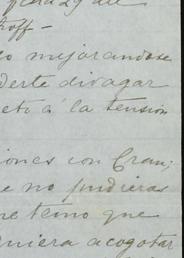 off –
o mejorandose
derte divagar
eto á la tension
iones con Cran;
e no pudieras
re temo que
uniera acogotar